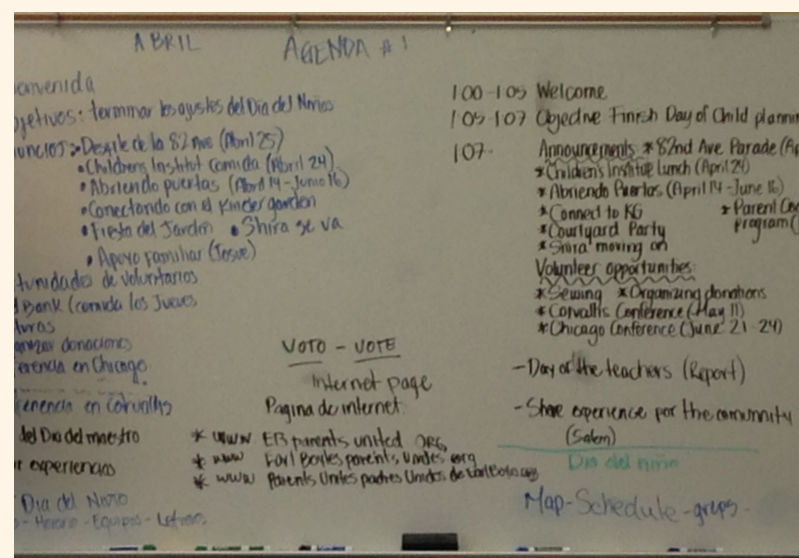 ABRIL
AGENDA #1
envenida
jetivos: terminar los ajustes del Dia del Niños
uncios: • Desfile de la 82 Ave (Abril 25)
• Childrens Institut comida (Abril 24)
• Abriendo puertas (Abril 14 - Junio 16)
• Conectando con el Kinder garden
• Fiesta del Jardin • Shira se va
• Apoyo Familiar (Josue)
tunidades de voluntarios
Bank (comida los Jueves
uras
anizar donaciones
erencia en Chicago
ferencia en Corvallis
del Dia del maestro
r experiencias
Dia del Niño
- Horario - Equipos - Letreros
VOTO - VOTE
Internet page
Pagina de internet
* www EB parents united ORG
* www Earl Boyles parents, Unides org
* www Parents Unites padres Unidos de
100-105 Welcome
105-107 Objective Finish Day of Child plannin
107- Announcements * 82nd Ave Parade (Ap
* Children's Institue Lunch (April 24)
* Abriendo Puertas (April 14 - June 16)
* Conned to KG * Parent
* Courtyard Party program (
* Shira moving on
Volunteer opportunities:
* Sewing * Organizing donations
* Corvallis Conference (May 11)
* Chicago Conference (June 21-24)
- Day of the teachers (Report)
- Share experience por the comunnity
(Salem)
Dia del niño
Map-Schedule-grups-